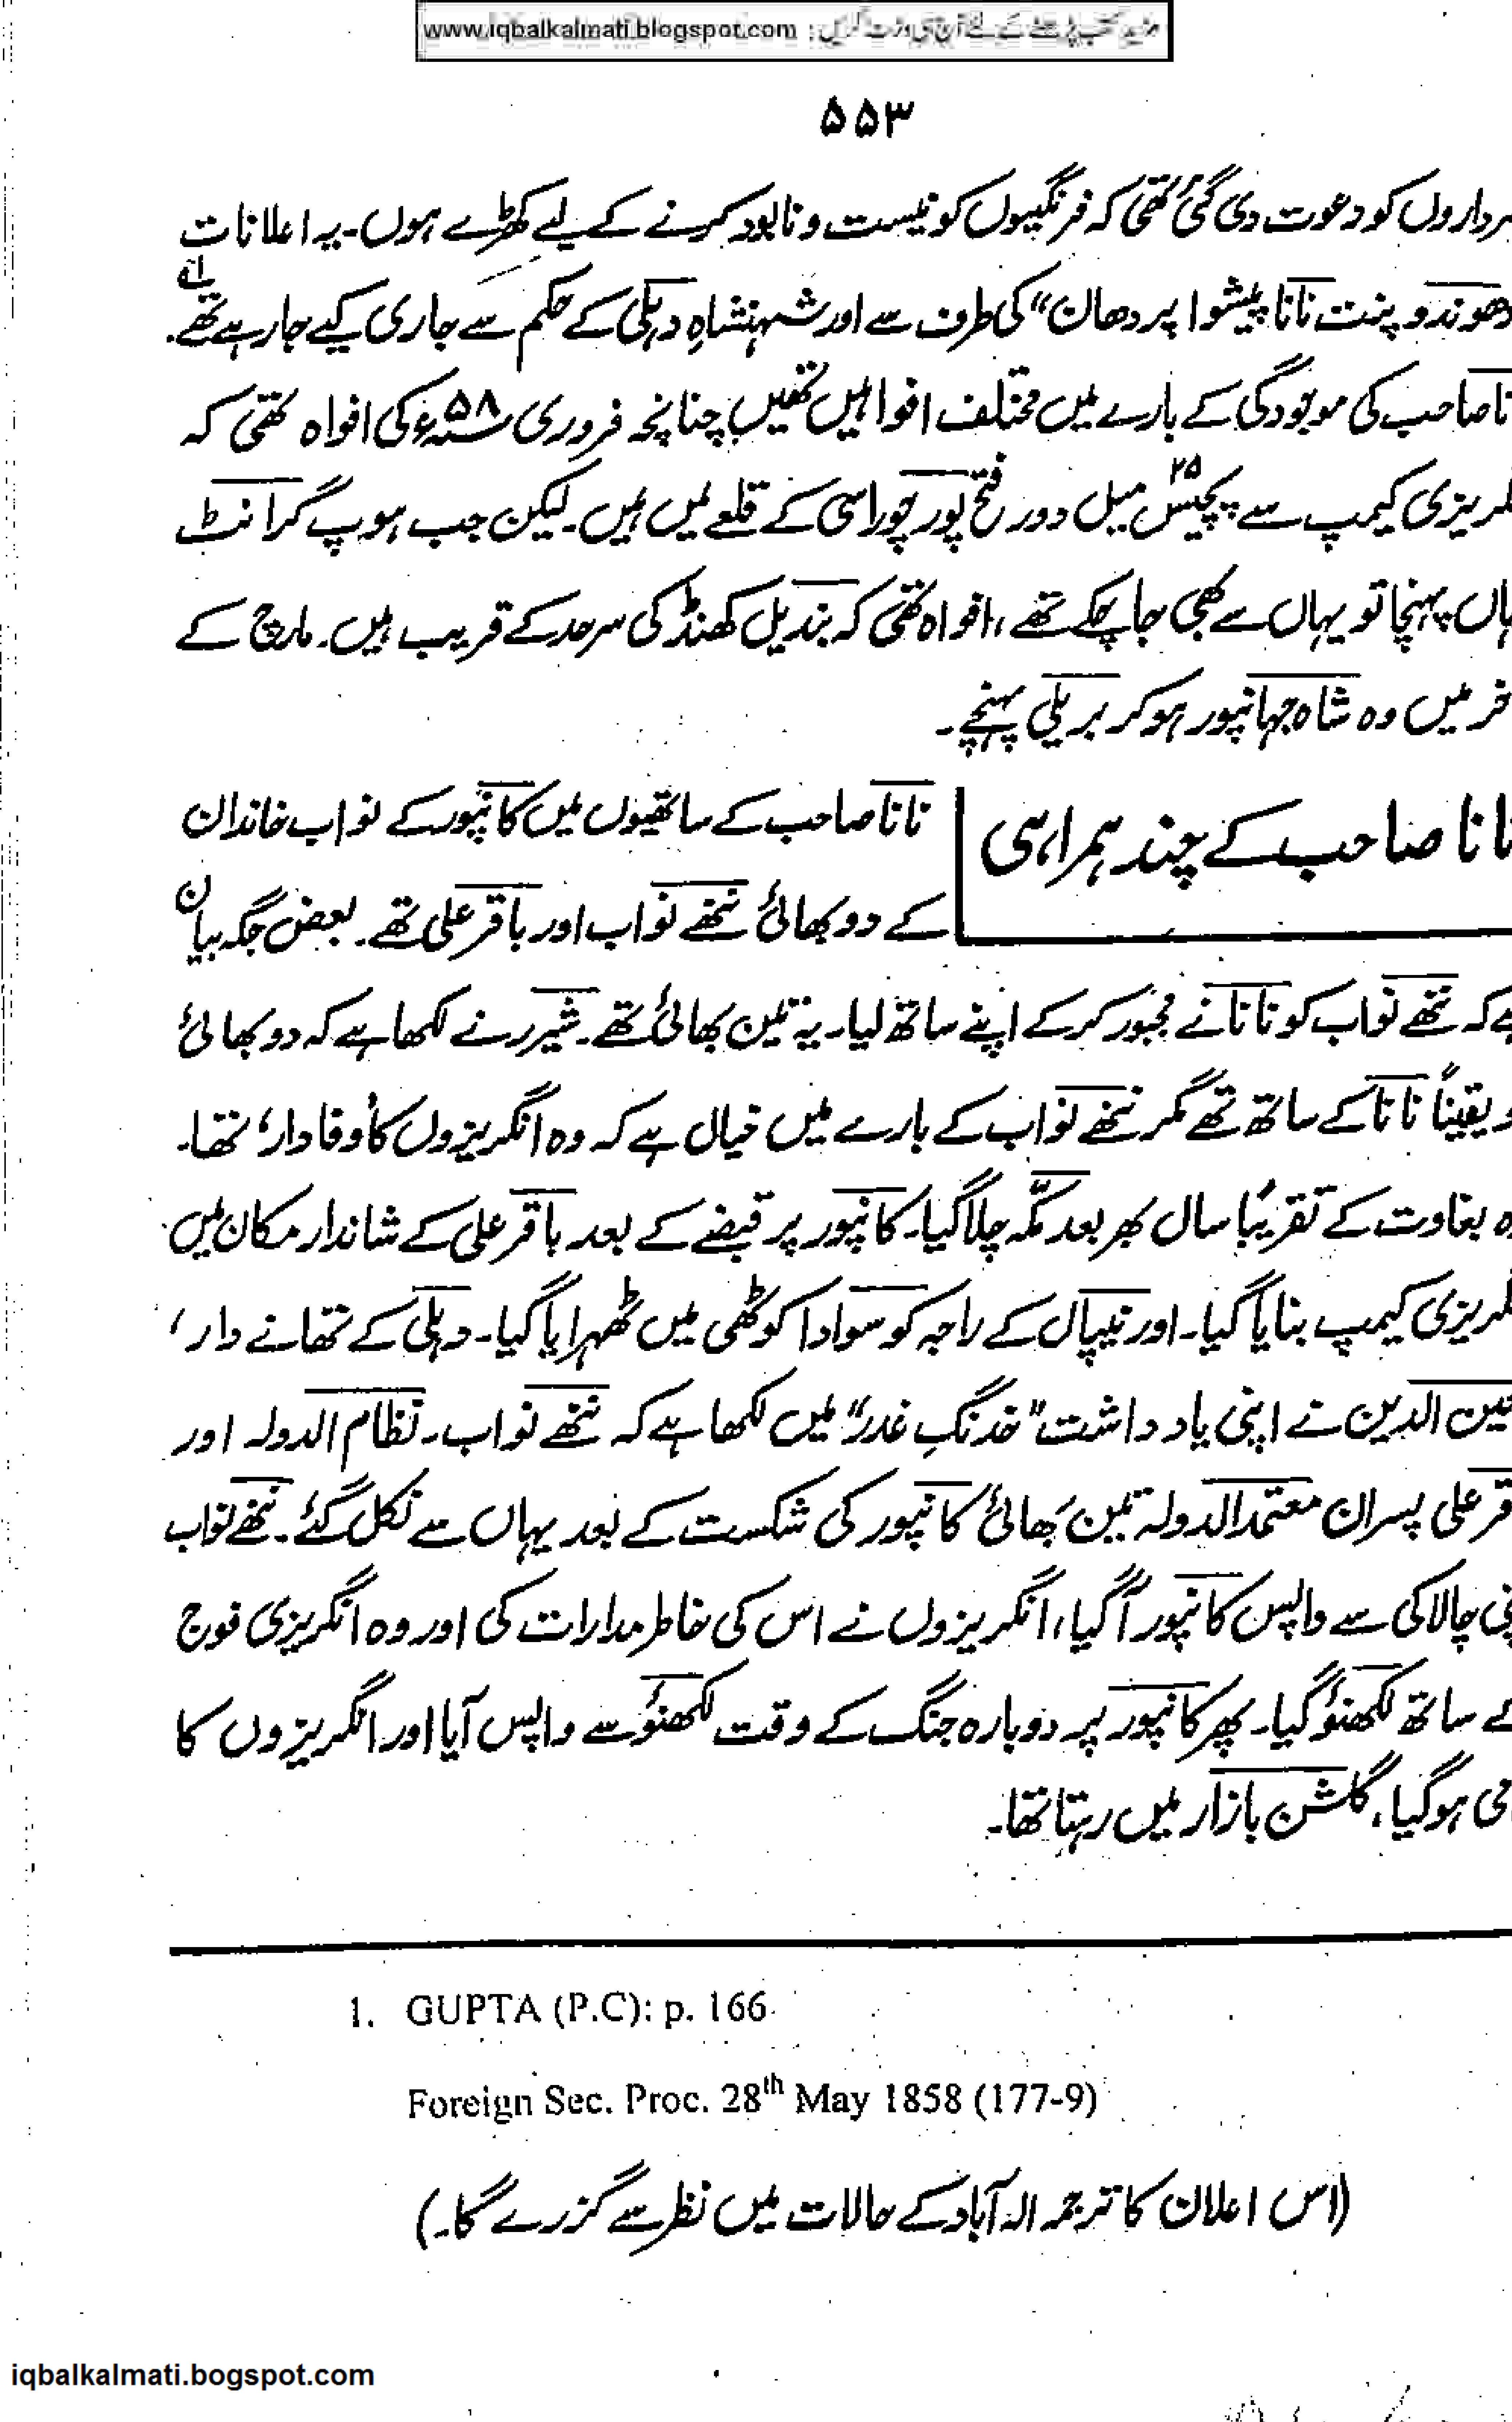 مزید کتب پڑھنے کے لئے آج ہی وزٹ کریں : www.iqbalkalmati.blogspot.com
۵۵۳
سرداروں کو دعوت دی گئی تھی کہ فرنگیوں کو نیست و نابود کرنے کے لیے کھڑے ہوں۔ یہ اعلانات
دھوندو پنت نانا پیشوا پردھان“ کی طرف سے اور شہنشاہِ دہلی کے حکم سے جاری کیے جا رہے تھے۔ لہ
نا صاحب کی موجودگی کے بارے میں مختلف افواہیں تھیں چنانچہ فروری ۵۸ء کی افواہ تھی کہ
ریزی کیمپ سے پچیس ۲۵ میل دور فتح پور چوراسی کے قلعے میں ہیں۔ لیکن جب ہوپ گرانٹ
ہاں پہنچا تو یہاں سے بھی جا چکے تھے، افواہ تھی کہ بندیل کھنڈ کی سرحد کے قریب ہیں۔ مارچ کے
خر میں وہ شاہ جہانپور ہو کر بریلی پہنچے۔
نانا صاحب کے چند ہمراہی
نانا صاحب کے ساتھیوں میں کانپور کے نواب خاندان
کے دو بھائی ننھے نواب اور باقر علی تھے۔ بعض جگہ بیان
ہے کہ ننھے نواب کو نانا نے مجبور کر کے اپنے ساتھ لیا۔ یہ تین بھائی تھے۔ شیرر نے لکھا ہے کہ دو بھائی
و یقیناً نانا کے ساتھ تھے مگر ننھے نواب کے بارے میں خیال ہے کہ وہ انگریزوں کا ’وفادار‘ تھا۔
ہ بغاوت کے تقریباً سال بھر بعد مکّہ چلا گیا۔ کانپور پر قبضے کے بعد باقر علی کے شاندار مکان میں
گریزی کیمپ بنایا گیا۔ اور نیپال کے راجہ کو سوادا کوٹھی میں ٹھہرایا گیا۔ دہلی کے تھانے دار،
عین الدین نے اپنی یادداشت ”خدنگِ غدر“ میں لکھا ہے کہ ننھے نواب۔ نظام الدولہ اور
قر علی پسران معتمد الدولہ تین بھائی کانپور کی شکست کے بعد یہاں سے نکل گئے۔ ننھے نواب
پنی چالاکی سے واپس کانپور آگیا، انگریزوں نے اس کی خاطر مدارات کی اور وہ انگریزی فوج
کے ساتھ لکھنؤ گیا۔ پھر کانپور پر دوبارہ جنگ کے وقت لکھنؤ سے واپس آیا اور انگریزوں کا
می ہوگیا، گلشن بازار میں رہتا تھا۔
1. GUPTA (P.C): p. 166
Foreign Sec. Proc. 28th May 1858 (177-9)
(اس اعلان کا ترجمہ الہ آباد کے حالات میں نظر سے گزرے گا۔)
iqbalkalmati.bogspot.com